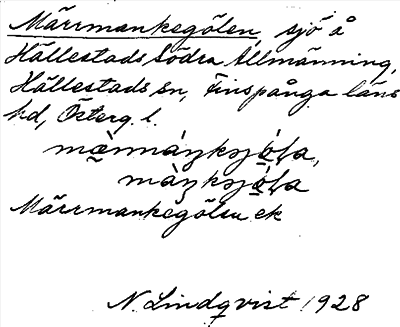 Märrmankegölen, sjö å
Hällestads Södra Allmänning,
Hällestads sn, Finspånga läns
hd, Österg. l.
Märrmankegölen ek
N. Lindqvist 1928